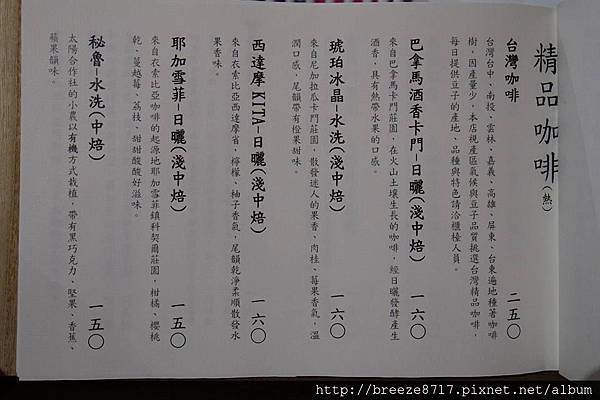 精品咖啡(熱)
台灣咖啡 二五〇
台灣台中、南投、雲林、嘉義、高雄、屏東、台東遍地種著咖啡
樹,因產量少,本店視產區氣候與豆子品質挑選台灣精品咖啡,
每日提供豆子的產地、品種與特色請洽櫃檯人員。
巴拿馬酒香卡門-日曬(淺中焙) 一六〇
來自巴拿馬卡門莊園,在火山土壤生長的咖啡,經日曬發酵產生
酒香,具有熱帶水果的口感。
琥珀冰晶-水洗(中焙) 一六〇
來自尼加拉瓜卡門莊園,散發迷人的果香、肉桂、莓果香氣,溫
潤口感,尾韻帶有橙果甜味。
西達摩 KITA-日曬(淺中焙) 一六〇
來自衣索比亞西達摩省,檸檬、柚子香氣,尾韻乾淨柔順散發水
果香味。
耶加雪菲-日曬(淺中焙) 一五〇
來自衣索比亞咖啡的起源地耶加雪菲鎮科契爾莊園,柑橘、櫻桃
乾、蔓越莓、荔枝、甜甜酸酸好滋味。
秘魯-水洗(中焙) 一五〇
太陽合作社的小農以有機方式栽植,帶有黑巧克力、堅果、香蕉、
蘋果韻味。
http://breeze8717.pixnet.net/album